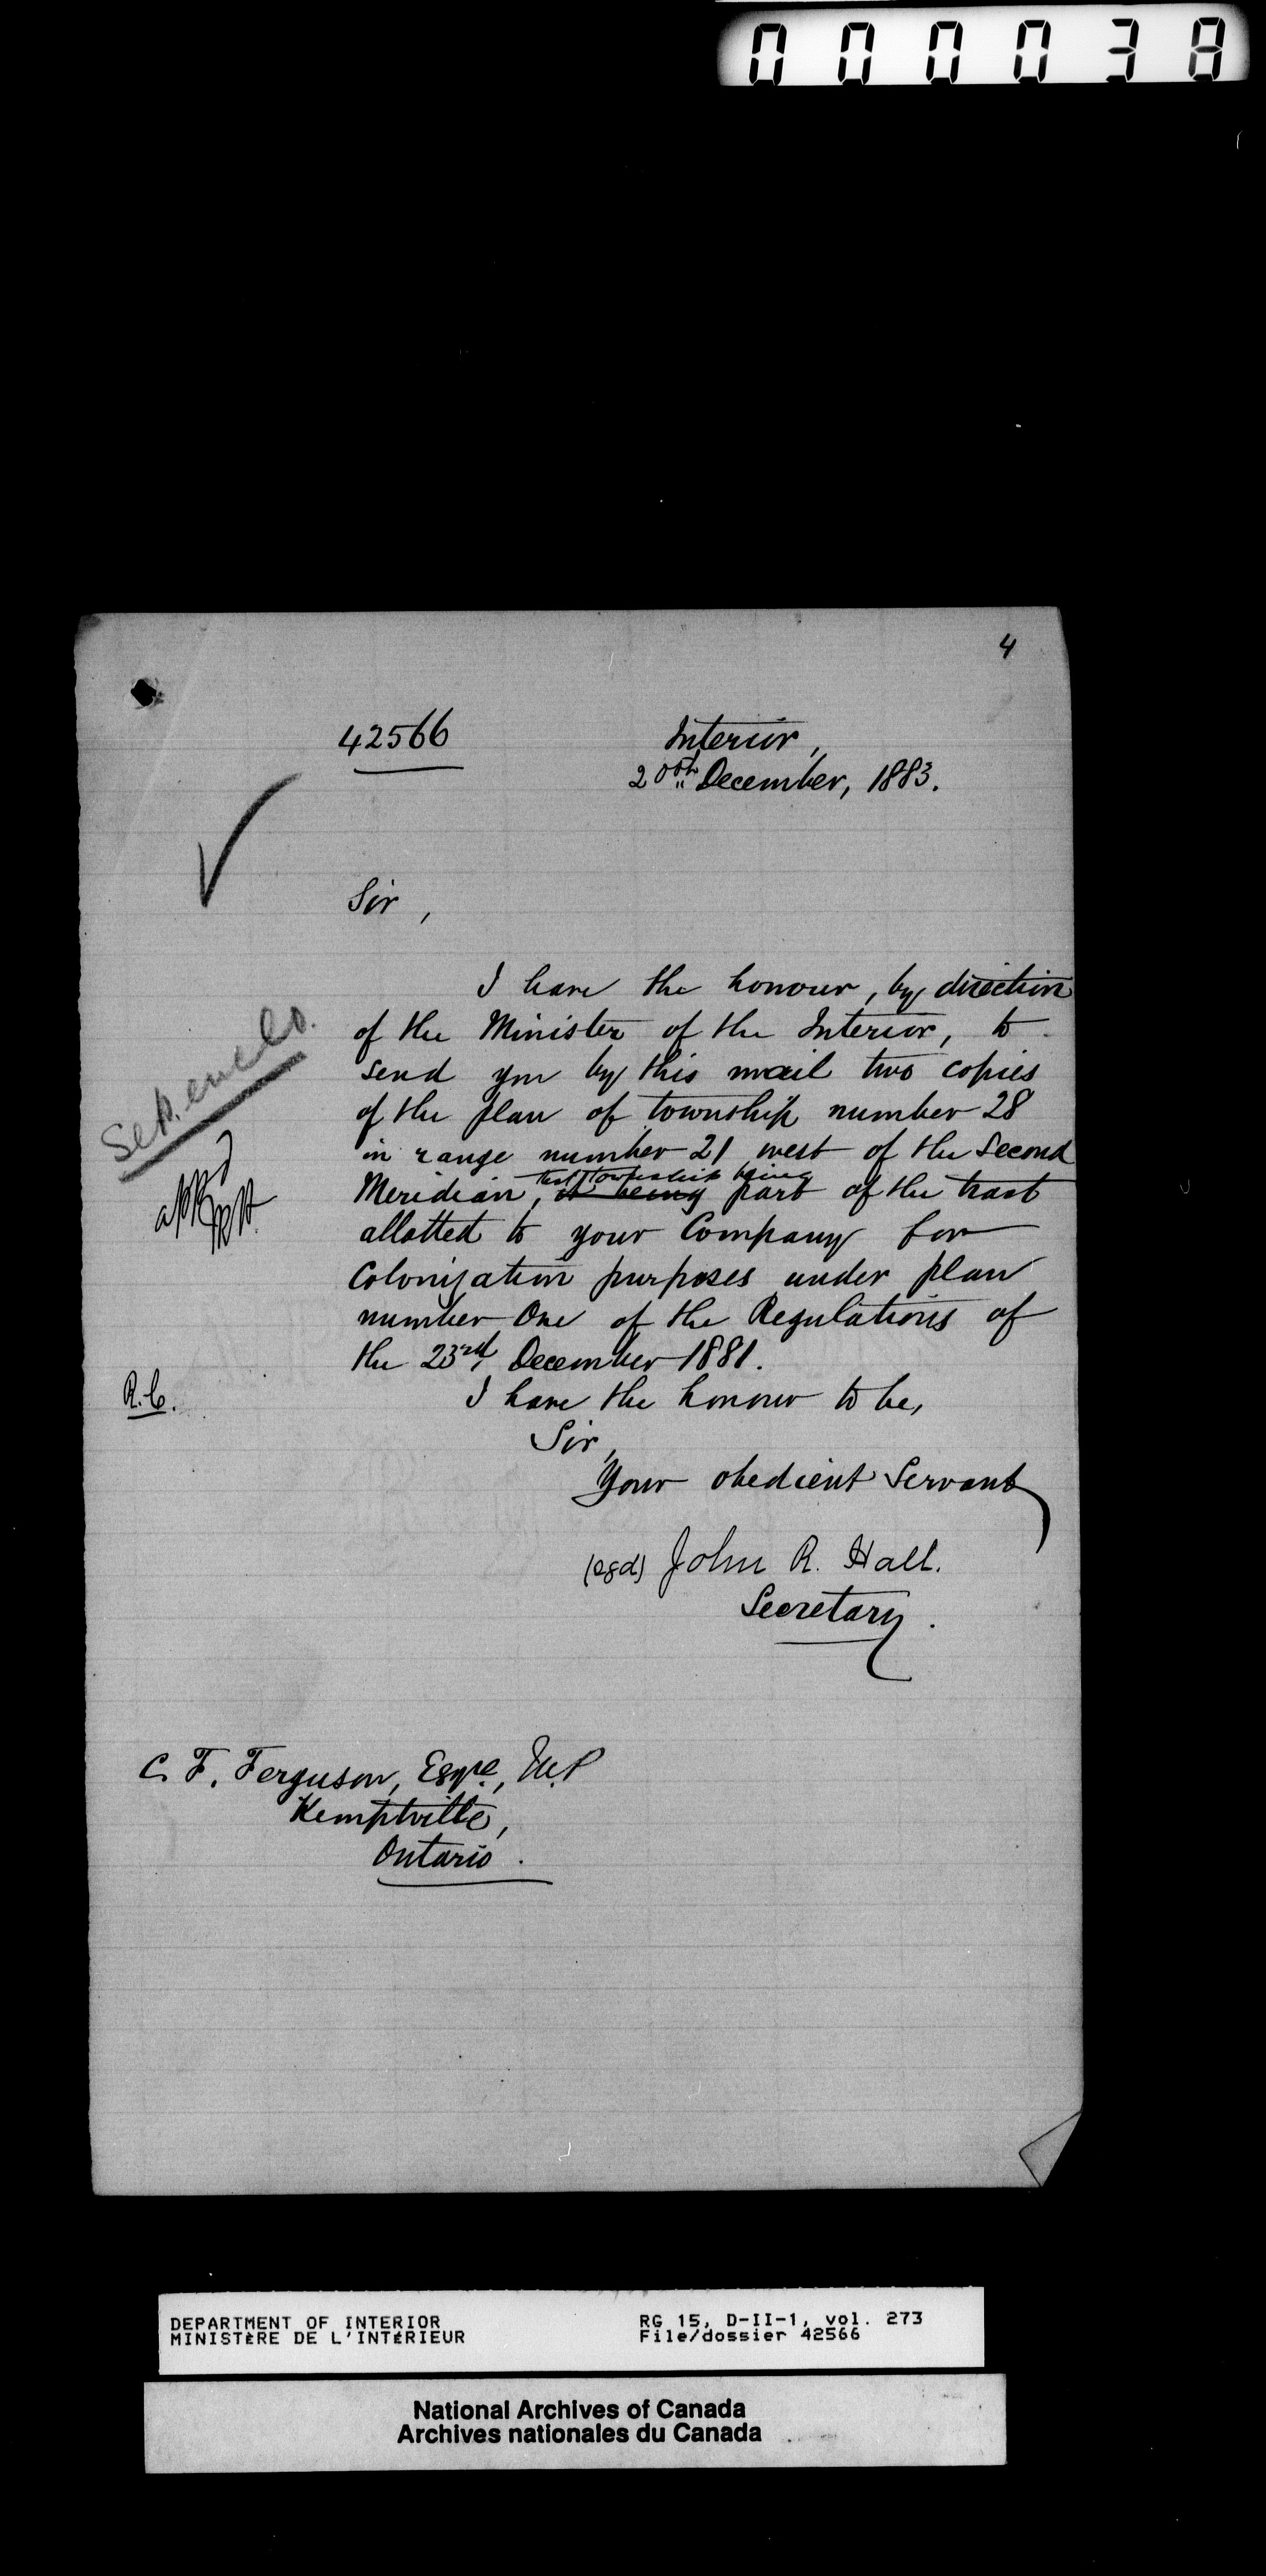 000038
4
42566
Interior,
20th December, 1883.
Sir,
I have the honour, by direction
of the Minister of the Interior, to
send you by this mail two copies
of the plan of township number 28
in range number 21 west of the Second
that township being
Meridian, it being part of the tract
allotted to your Company for
Colonization purposes under plan
number One of the Regulations of
the 23rd, December 1881.
R.C.
I have the honour to be,
Sir,
Your obedient Servant
(sgd) John R. Hall.
Secretary.
C. F. Ferguson, Esqre., M.P
Kemptville,
Ontario.
DEPARTMENT OF INTERIOR
MINISTÈRE DE L'INTÉRIEUR
RG 15, D-II-1, vol. 273
File/dossier 42566
National Archives of Canada
Archives nationales du Canada